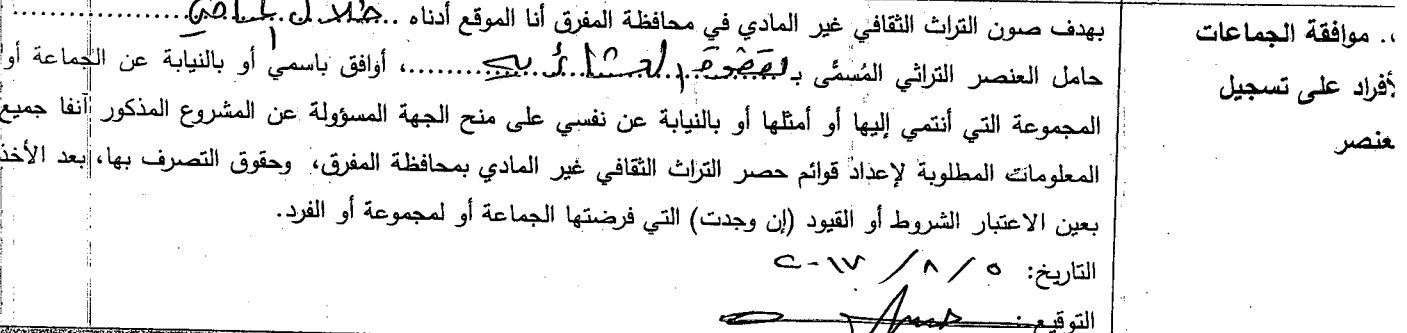 .. موافقة الجماعات
لأفراد على تسجيل
عنصر
بهدف صون التراث الثقافي غير المادي في محافظة المفرق أنا الموقع أدناه ..
حامل العنصر التراثي المُسمَّى بـ ........، أوافق باسمي أو بالنيابة عن الجماعة أو
المجموعة التي أنتمي إليها أو أمثلها أو بالنيابة عن نفسي على منح الجهة المسؤولة عن المشروع المذكور آنفا جميع
المعلومات المطلوبة لإعداد قوائم حصر التراث الثقافي غير المادي بمحافظة المفرق، وحقوق التصرف بها، بعد الأخذ
بعين الاعتبار الشروط أو القيود (إن وجدت) التي فرضتها الجماعة أو لمجموعة أو الفرد.
التاريخ: ٥ / ٨ / ٢٠١٧
التوقيع: